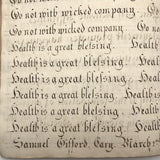 Go not with wicked company. Go
Go not with wicked company
Health is a great blessing. Health
Health is a great blessing.
Health is a great blessing.
Health is a great blessing. Health
Health is a great blessing. Health
Samuel Gifford Cary. March